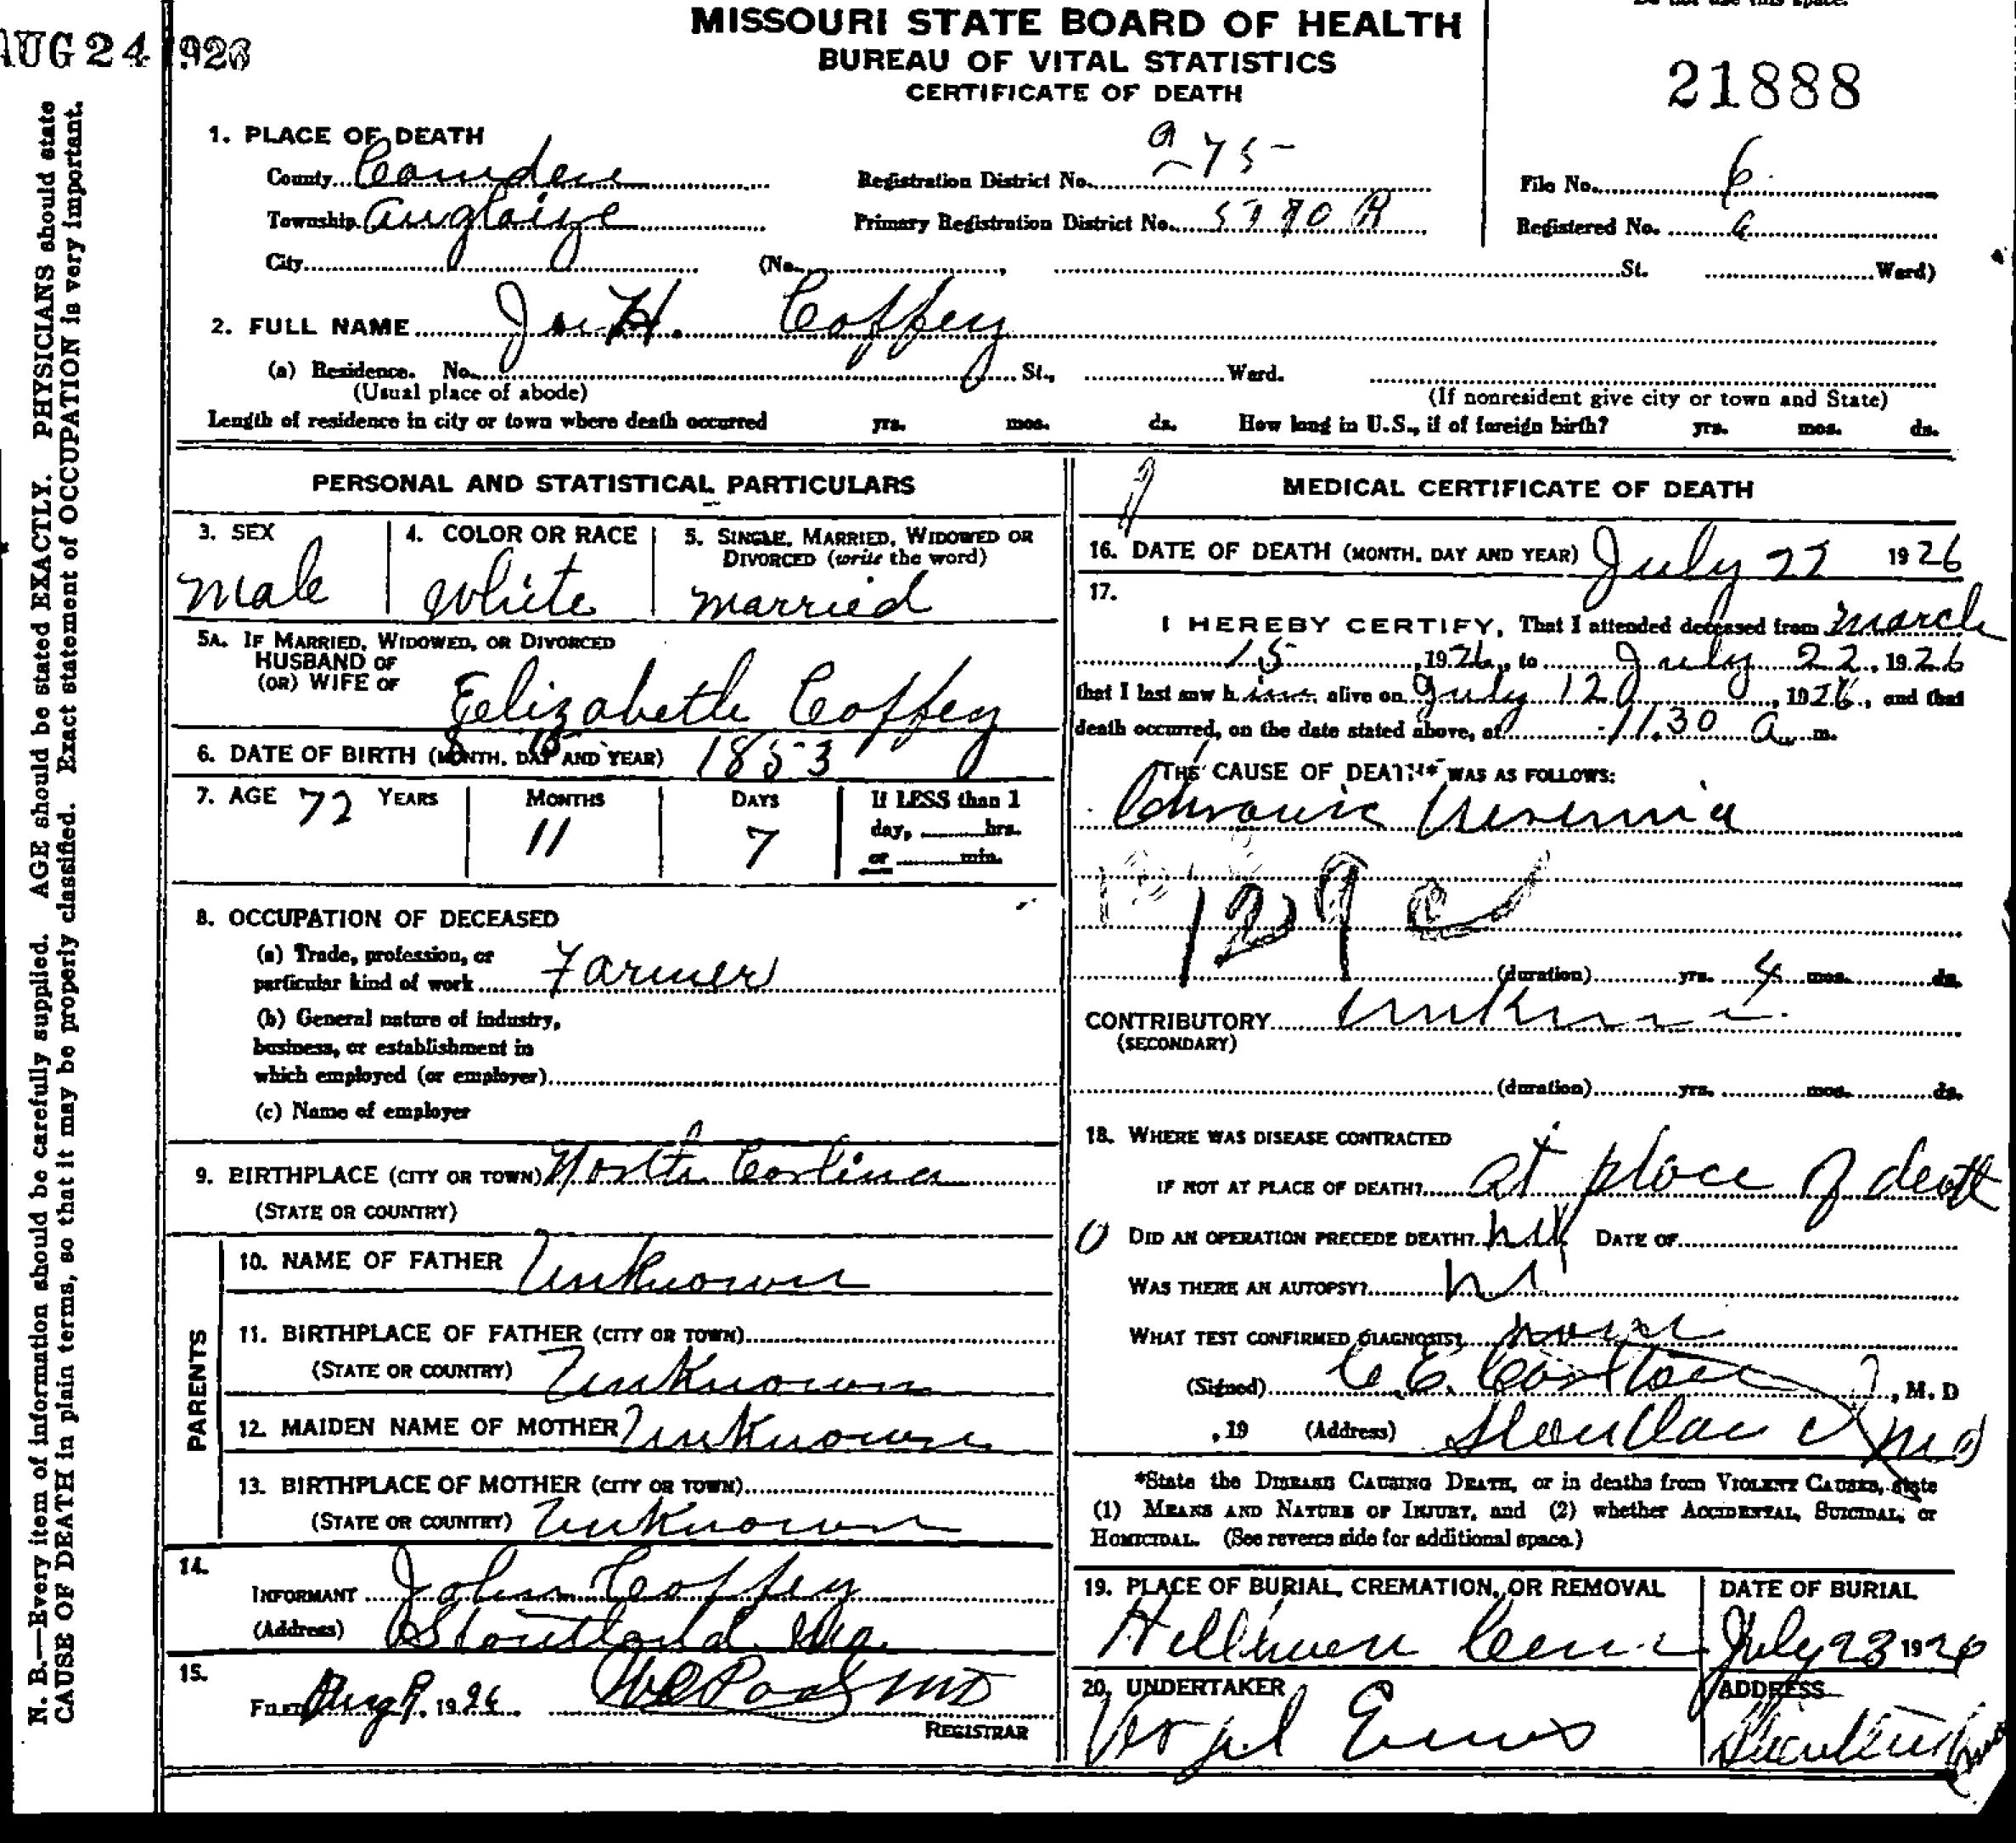 AUG 24 1926
MISSOURI STATE BOARD OF HEALTH
BUREAU OF VITAL STATISTICS
CERTIFICATE OF DEATH
21888
1. PLACE OF DEATH
County Camden
Registration District No. 275
File No. 6
Township Auglaize
Primary Registration District No.
Registered No. 6
City (No. St. Ward)
2. FULL NAME Joe H. Coffey
(a) Residence. No. St., Ward.
(Usual place of abode)
(If nonresident give city or town and State)
Length of residence in city or town where death occurred yrs. mos. ds. How long in U.S., if of foreign birth? yrs. mos. ds.
PERSONAL AND STATISTICAL PARTICULARS
3. SEX
male
4. COLOR OR RACE
White
5. SINGLE, MARRIED, WIDOWED OR
DIVORCED (write the word)
married
5A. IF MARRIED, WIDOWED, OR DIVORCED
HUSBAND OF
(OR) WIFE OF
Elizabeth Coffey
6. DATE OF BIRTH (MONTH, DAY AND YEAR) 8 15 1853
7. AGE 72 YEARS
MONTHS
11
DAYS
7
If LESS than 1
day, hrs.
or min.
8. OCCUPATION OF DECEASED
(a) Trade, profession, or
particular kind of work Farmer
(b) General nature of industry,
business, or establishment in
which employed (or employer)
(c) Name of employer
9. BIRTHPLACE (CITY OR TOWN) North Corlina
(STATE OR COUNTRY)
PARENTS
10. NAME OF FATHER Unknown
11. BIRTHPLACE OF FATHER (CITY OR TOWN)
(STATE OR COUNTRY) Unknown
12. MAIDEN NAME OF MOTHER Unknown
13. BIRTHPLACE OF MOTHER (CITY OR TOWN)
(STATE OR COUNTRY) Unknown
14.
INFORMANT John Coffey
(Address) Stoutland Mo.
15.
FILED Aug 9, 1926
REGISTRAR
MEDICAL CERTIFICATE OF DEATH
16. DATE OF DEATH (MONTH, DAY AND YEAR) July 22 1926
17.
I HEREBY CERTIFY, That I attended deceased from March
15, 1926, to July 22, 1926
that I last saw him alive on July 12, 1926, and that
death occurred, on the date stated above, at 11.30 a. m.
THE CAUSE OF DEATH* WAS AS FOLLOWS:
Chronic Uremia
129
(duration) yrs. 4 mos. ds.
CONTRIBUTORY
(SECONDARY)
(duration) yrs. mos. ds.
18. WHERE WAS DISEASE CONTRACTED
IF NOT AT PLACE OF DEATH? at place of death
DID AN OPERATION PRECEDE DEATH? DATE OF
WAS THERE AN AUTOPSY?
WHAT TEST CONFIRMED DIAGNOSIS? none
(Signed) C. E. Carlton, M. D
, 19 (Address) Stoutland Mo
*State the DISEASE CAUSING DEATH, or in deaths from VIOLENT CAUSES, state
(1) MEANS AND NATURE OF INJURY, and (2) whether ACCIDENTAL, SUICIDAL, or
HOMICIDAL. (See reverse side for additional space.)
19. PLACE OF BURIAL, CREMATION, OR REMOVAL
DATE OF BURIAL
July 23 1926
20. UNDERTAKER
ADDRESS
N. B.—Every item of information should be carefully supplied. AGE should be stated EXACTLY. PHYSICIANS should state
CAUSE OF DEATH in plain terms, so that it may be properly classified. Exact statement of OCCUPATION is very important.